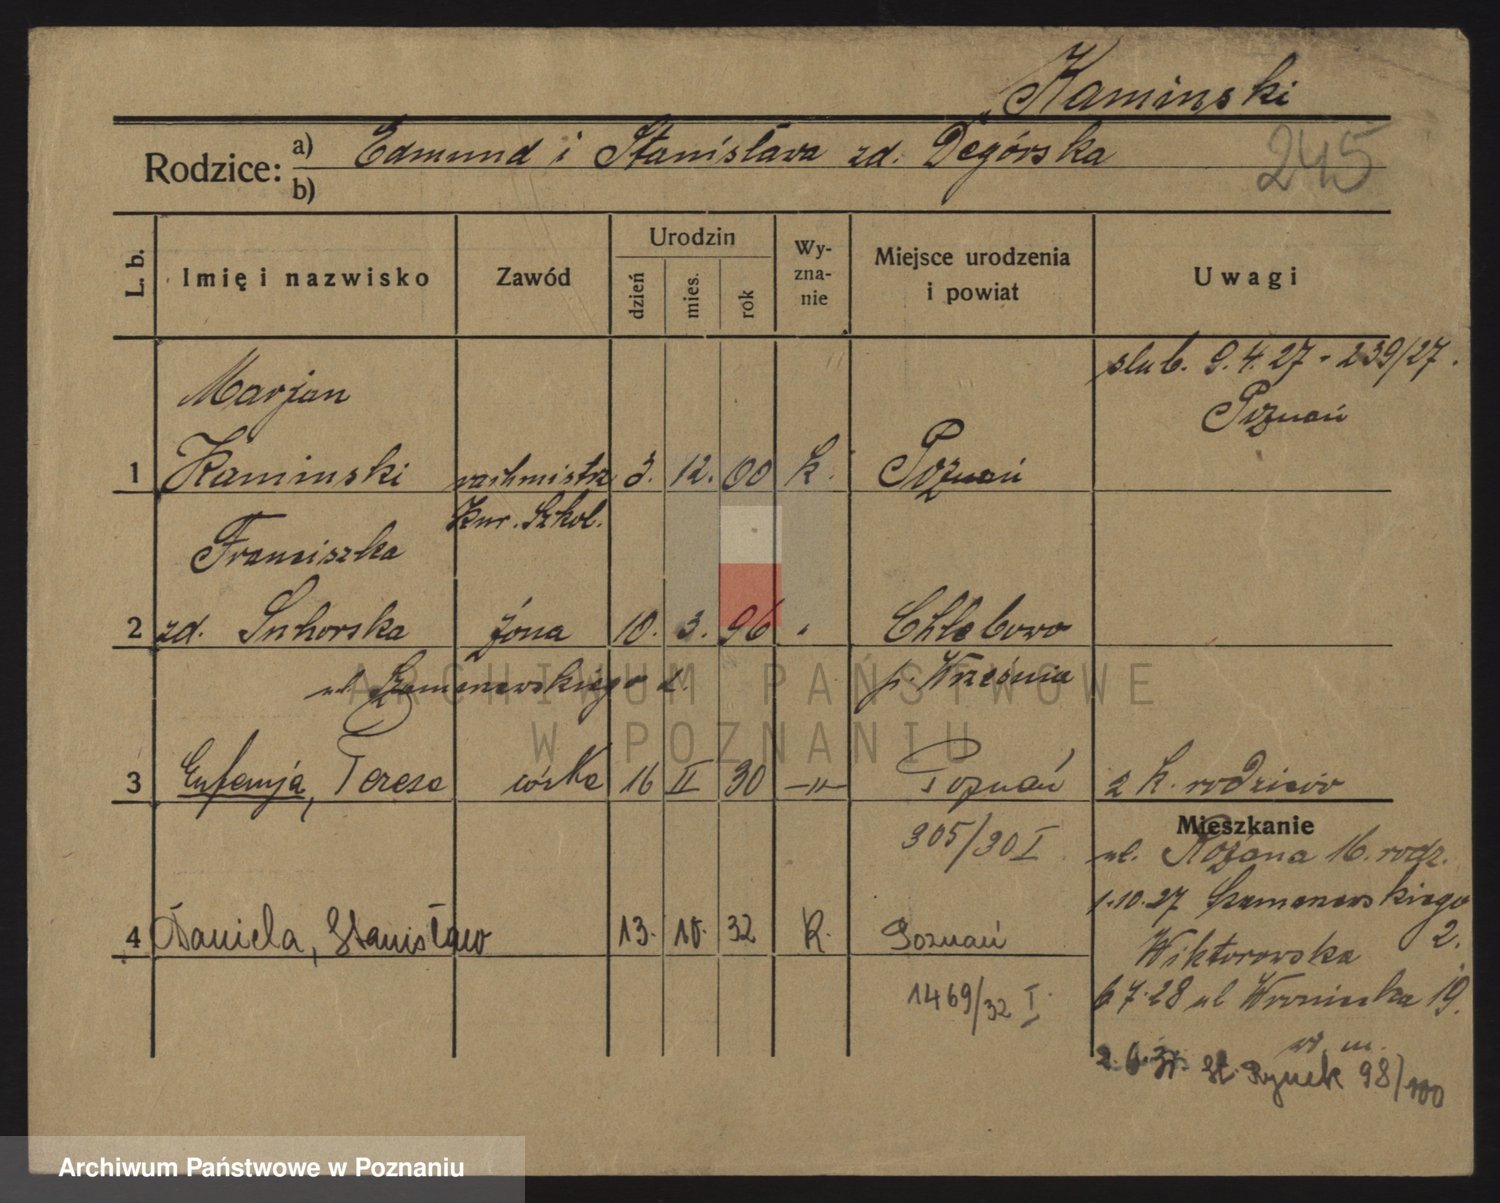 Kaminski
Rodzice: a) Edmund i Stanisława zd. Degórska
b)
245
L. b.
Imię i nazwisko
Zawód
Urodzin
dzień
mies.
rok
Wy-
zna-
nie
Miejsce urodzenia
i powiat
Uwagi
slub. 9.4.27 - 239/27.
Poznań
Marjan
1 Kaminski wachmistrz 3. 12. 00 k. Poznań
Kur. Szkol.
Franciszka
2 zd. Suhorska żona 10. 3. 96 Chlebowo
p. Września
3 Eufemja, Teresa córka 16 II 30 -"- Poznań 2 k. rodziców
305/30 I
Mieszkanie
ul. Różana 16. rodz.
1.10.27
2.
4 Daniela, Stanisław 13. 10. 32 k. Poznań
1469/32 I
Wiktorowska
6 7.28 ul 19.
w m.
St. Rynek 98/100
ARCHIWUM PAŃSTWOWE
W POZNANIU
Archiwum Państwowe w Poznaniu